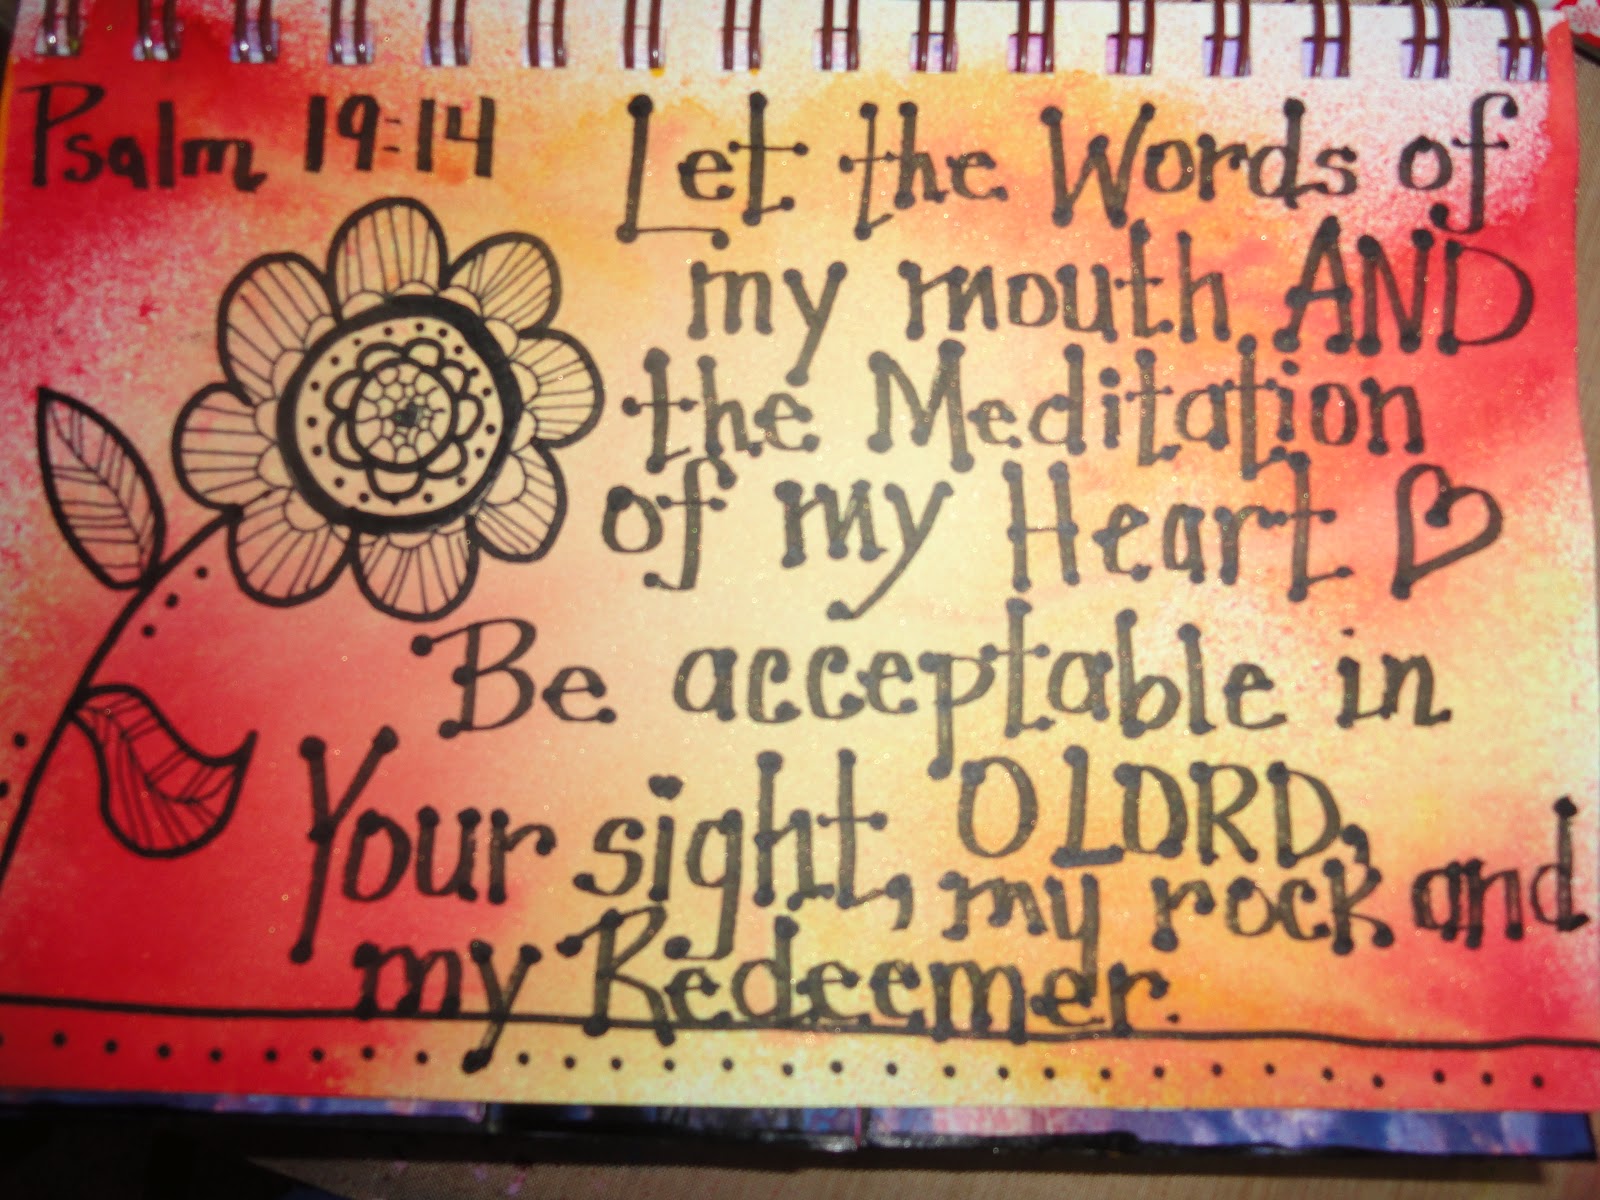 Psalm 19:14
Let the Words of
my mouth AND
the Meditation
of my Heart
Be acceptable in
Your sight, O LORD,
my rock and
my Redeemer.